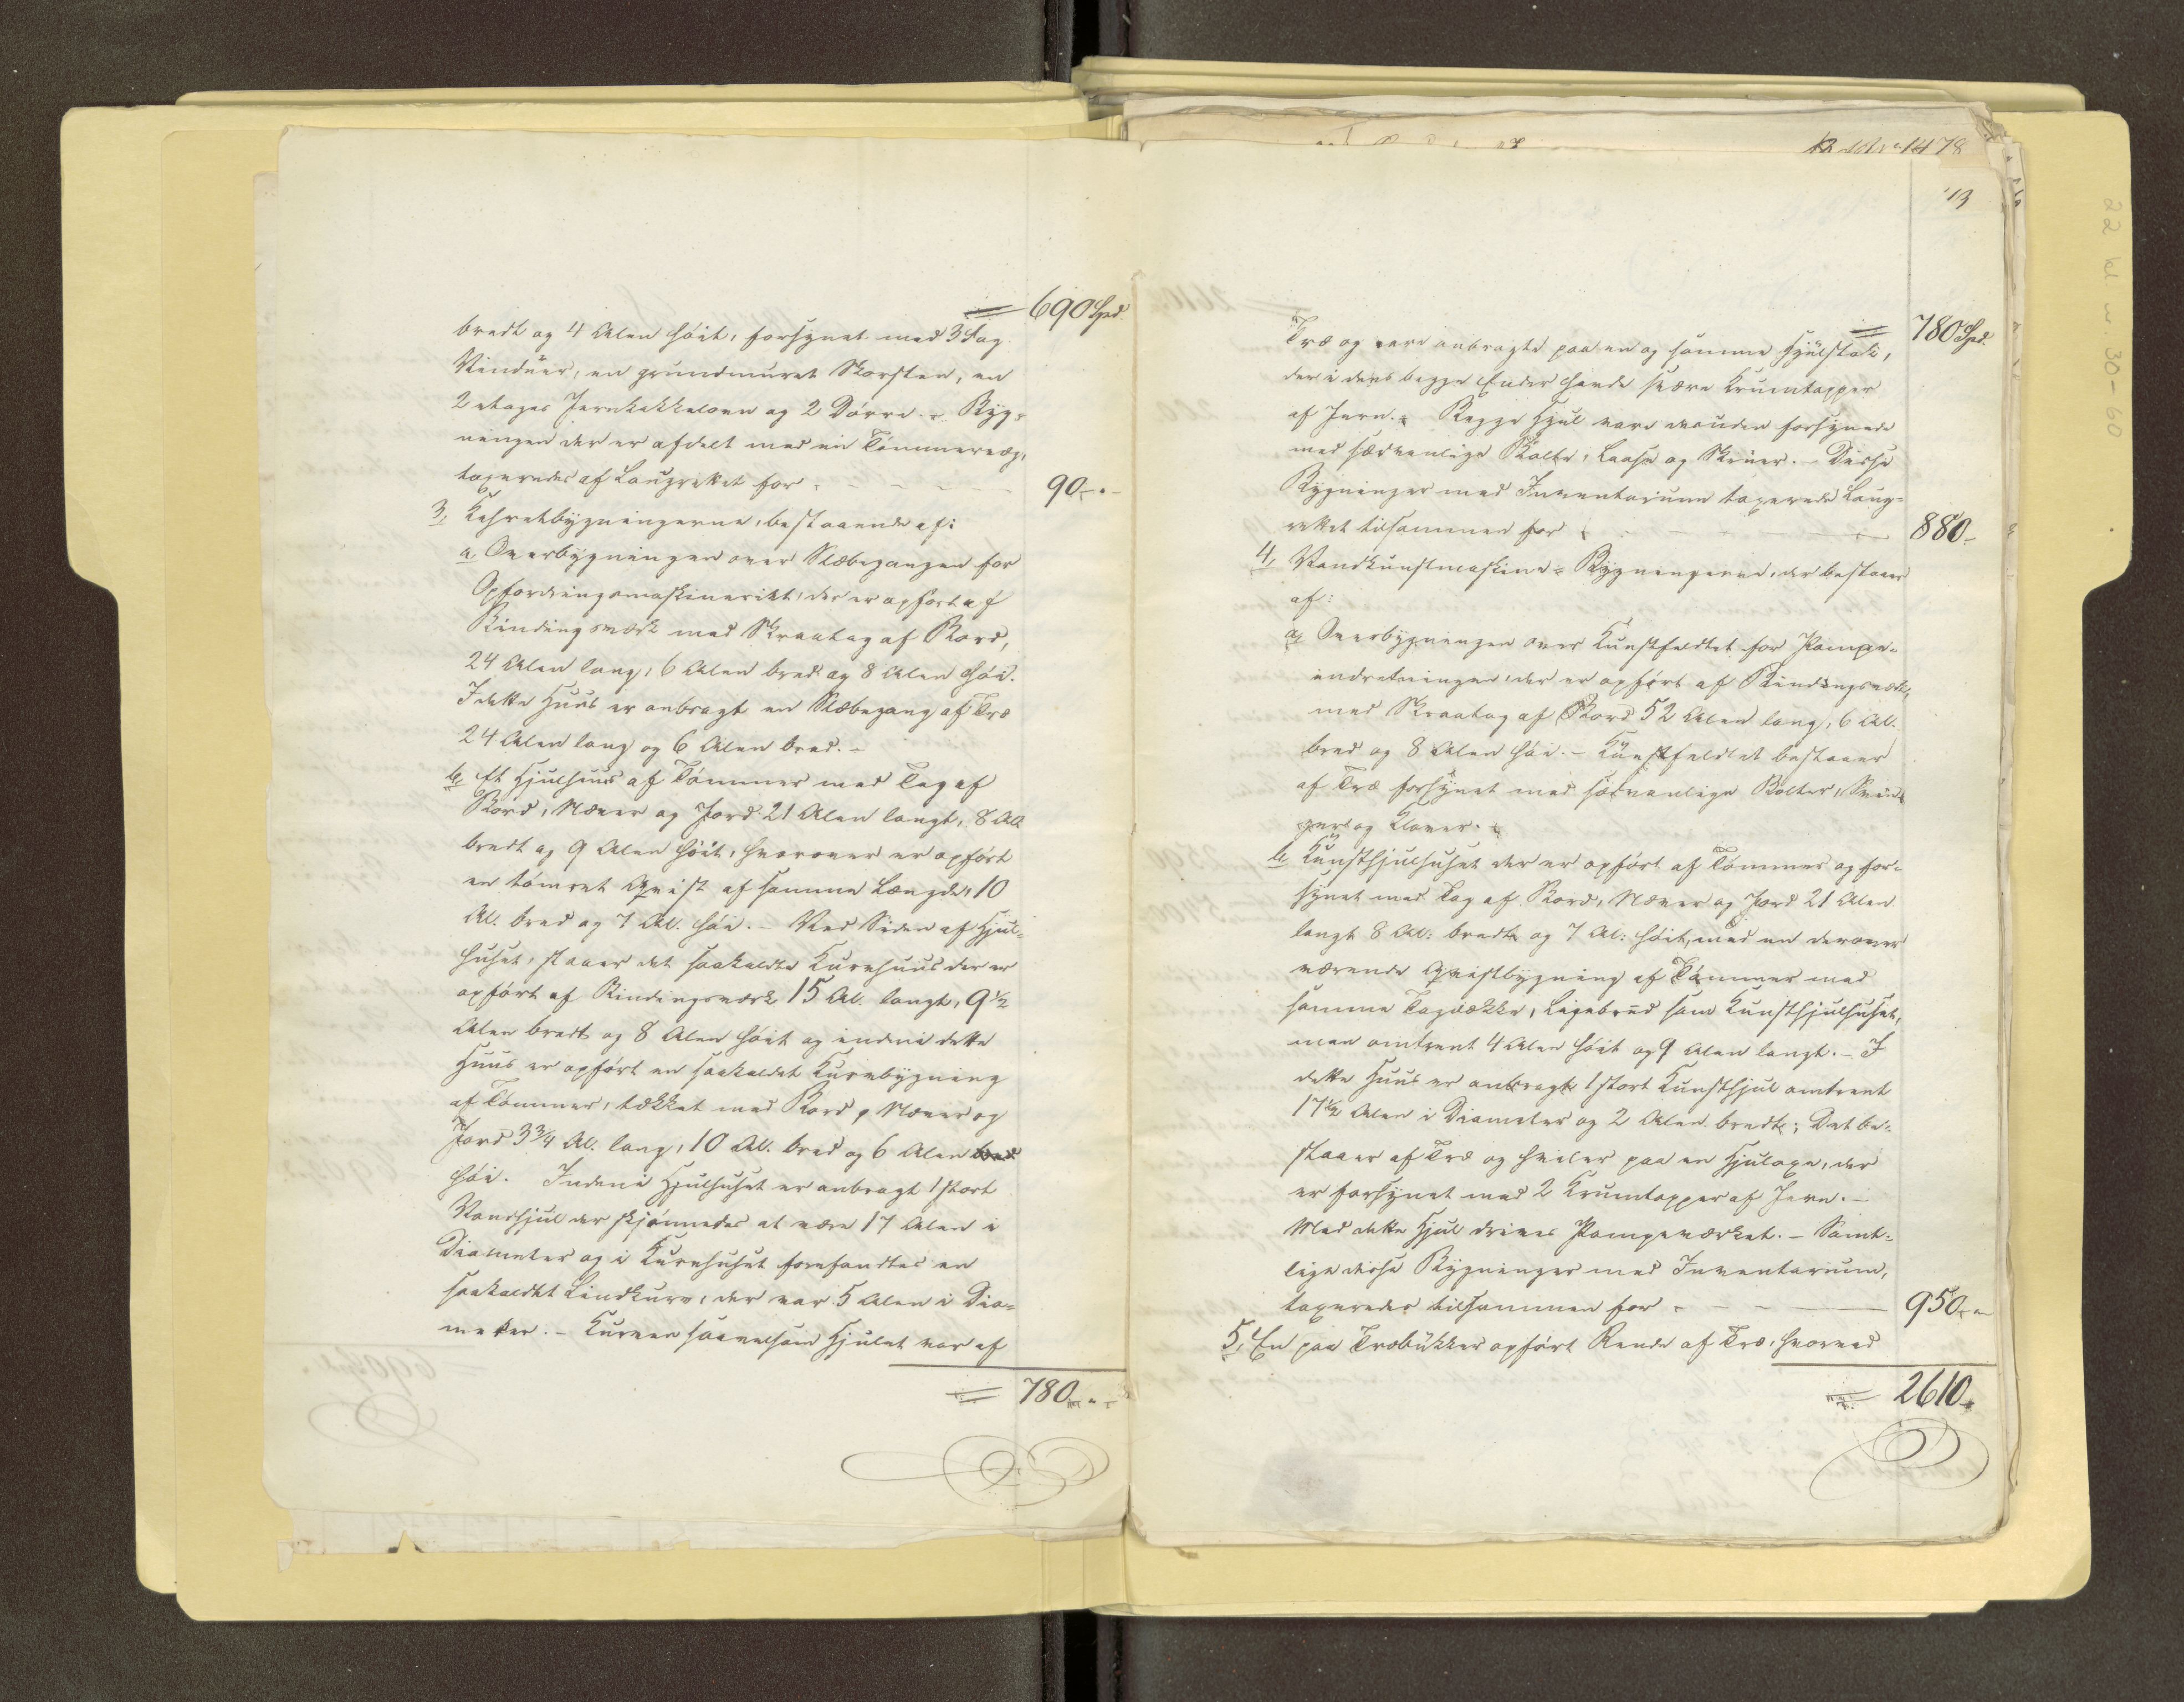 = 690 Spd.
bredt og 4 Alen höit, forsynet med 3 Fag
Vinduer, en grundmuret Skorsten, en
2 etages Jernkakkelovn og 2 Dörre. - Byg-
ningen der er afdelt med en Tömmervæg,
taxeredes af Laugrettet for - - - - 90 -
3, Kehrradbygningerne, bestaaende af:
a, Overbygningen over Slæbegangen for
Opfordringsmaskineriet, der er opfört af
Bindingsværk med Skraatag af Bord,
24 Alen lang, 6 Alen bred og 8 Alen höi.
I dette Huus er anbragt en Slæbegang af Træ
24 Alen lang og 6 Alen bred. -
b, Et Hjulhuus af Tömmer med Tag af
Bord, Næver og Jord 21 Alen langt, 8 Al.
bredt og 9 Alen höit, hvorover er opfört
en tömret Qvist af samme Længde, 10
Al. bred og 7 Al. höi. - Ved Siden af Hjul-
huset, staaer det saakaldte Kurvhuus der er
opfört af Bindingsværk 15 Al. langt, 9 1/2
Alen bredt og 8 Alen höit og indeni dette
Huus er opfört en saakaldet Kurvbygning
af Tömmer, tækket med Bord, Næver og
Jord 3 3/4 Al. lang, 10 Al. bred og 6 Alen bred
höi. Indeni Hjulhuset er anbragt 1 stort
Vandhjul der skjönnedes at være 17 Alen i
Diameter og i Kurvhuset forefandtes en
saakaldet Lindkurv, der var 5 Alen i Dia-
meter. - Kurven saavelsom Hjulet var af
= 780 -
13
= 780 Spd.
Træ og vare anbragte paa en og samme Hjulstok,
der i dens begge Ender havde svære Krumtapper
af Jern. - Begge Hjul vare desuden forsynede
med sædvanlige Bolte, Laase og Skruer. - Disse
Bygninger med Inventarium taxerede Laug-
rettet tilsammen for - - - 880 -
4, Vandkunstmaskine-Bygningerne, der bestaaer
af:
a, Overbygningen over Kunstfeldtet for Pumpe-
indretningen, der er opfört af Bindingsværk,
med Skraatag af Bord 52 Alen lang, 6 Al.
bred og 8 Alen höi. - Kunstfeldtet bestaaer
af Træ forsynet med sædvanlige Bolter, Svin-
ger og Klover. -
b, Kunsthjulhuset der er opfört af Tömmer og for-
synet med Tag af Bord, Næver og Jord 21 Alen
langt 8 Al: bredt og 7 Al: höit, med en derover
værende Qvistbygning af Tömmer med
samme Tagdække, ligebred som Kunsthjulhuset,
men omtrent 4 Alen höit og 9 Alen langt. - I
dette Huus er anbragt 1 stort Kunsthjul omtrent
17 1/2 Alen i Diameter og 2 Alen bredt; Det be-
staaer af Træ og hviler paa en Hjulaxe, der
er forsynet med 2 Krumtapper af Jern. -
Med dette Hjul drives Pumpeværket. - Samt-
lige disse Bygninger med Inventarium,
taxeredes tilsammen for - - - 950 -
5, En paa Træbukker opfört Rende af Træ, hvorved
= 2610 -
22 kl w. 30-60